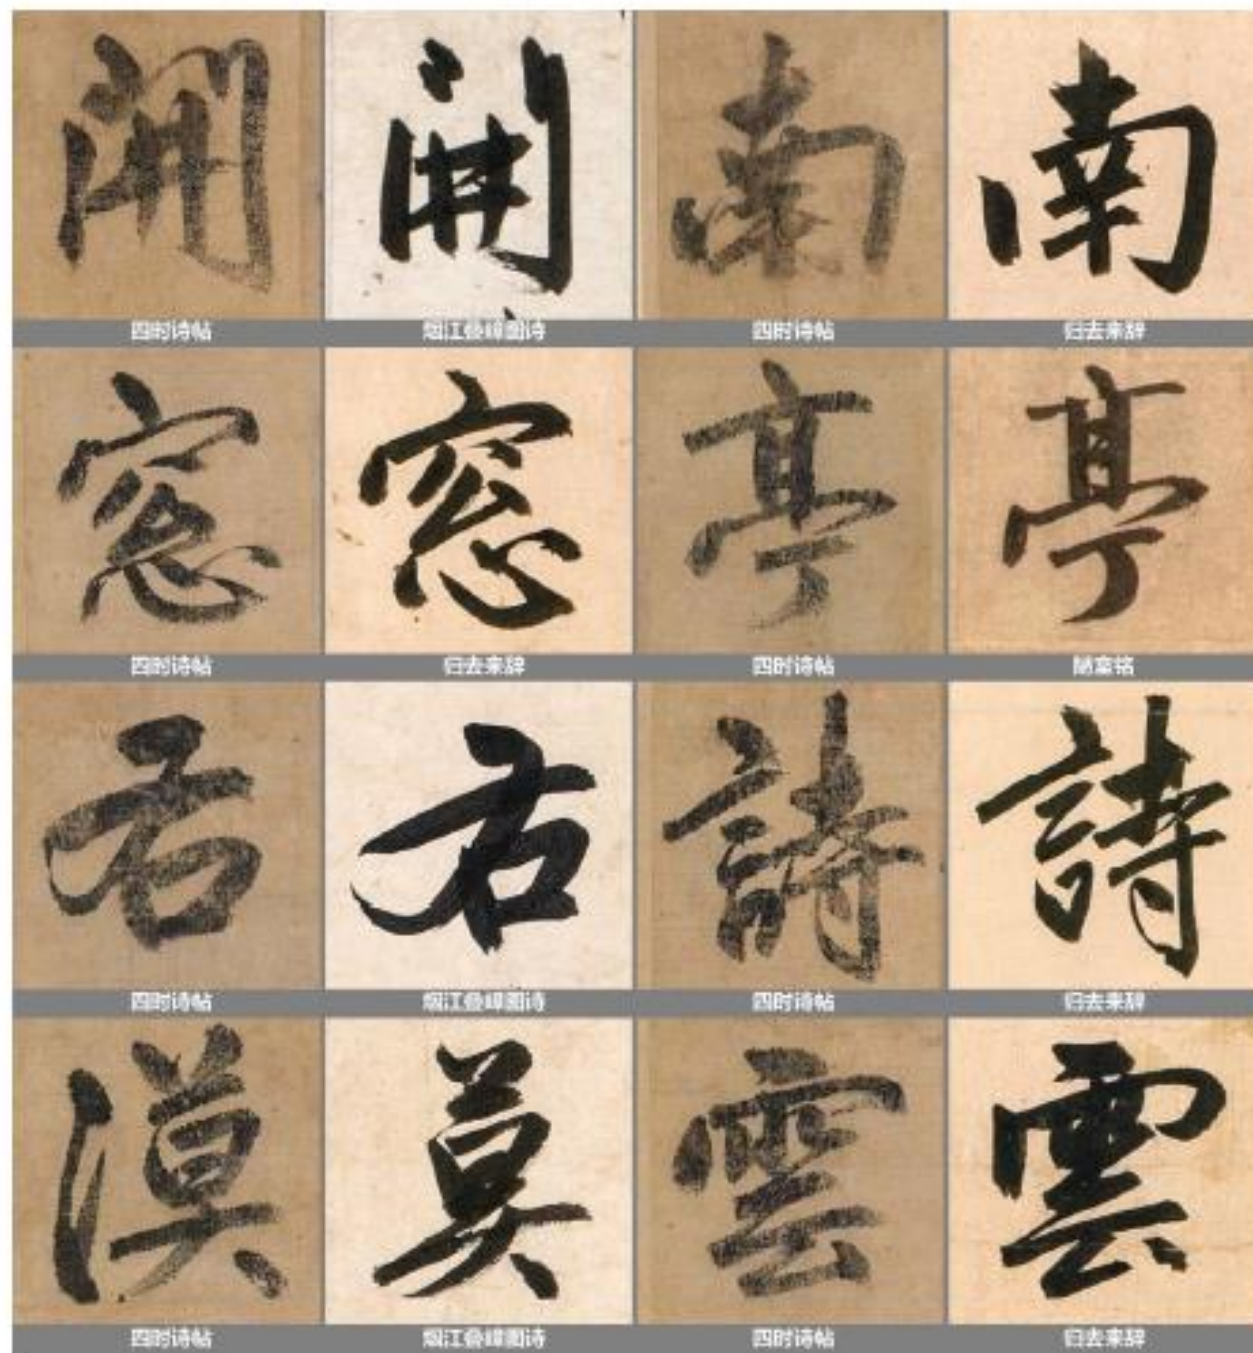 開 開 南 南
四时诗帖 烟江叠嶂图诗 四时诗帖 归去来辞
窓 窓 亭 亭
四时诗帖 归去来辞 四时诗帖 陋室铭
右 右 詩 詩
四时诗帖 烟江叠嶂图诗 四时诗帖 归去来辞
漠 莫 雲 雲
四时诗帖 烟江叠嶂图诗 四时诗帖 归去来辞